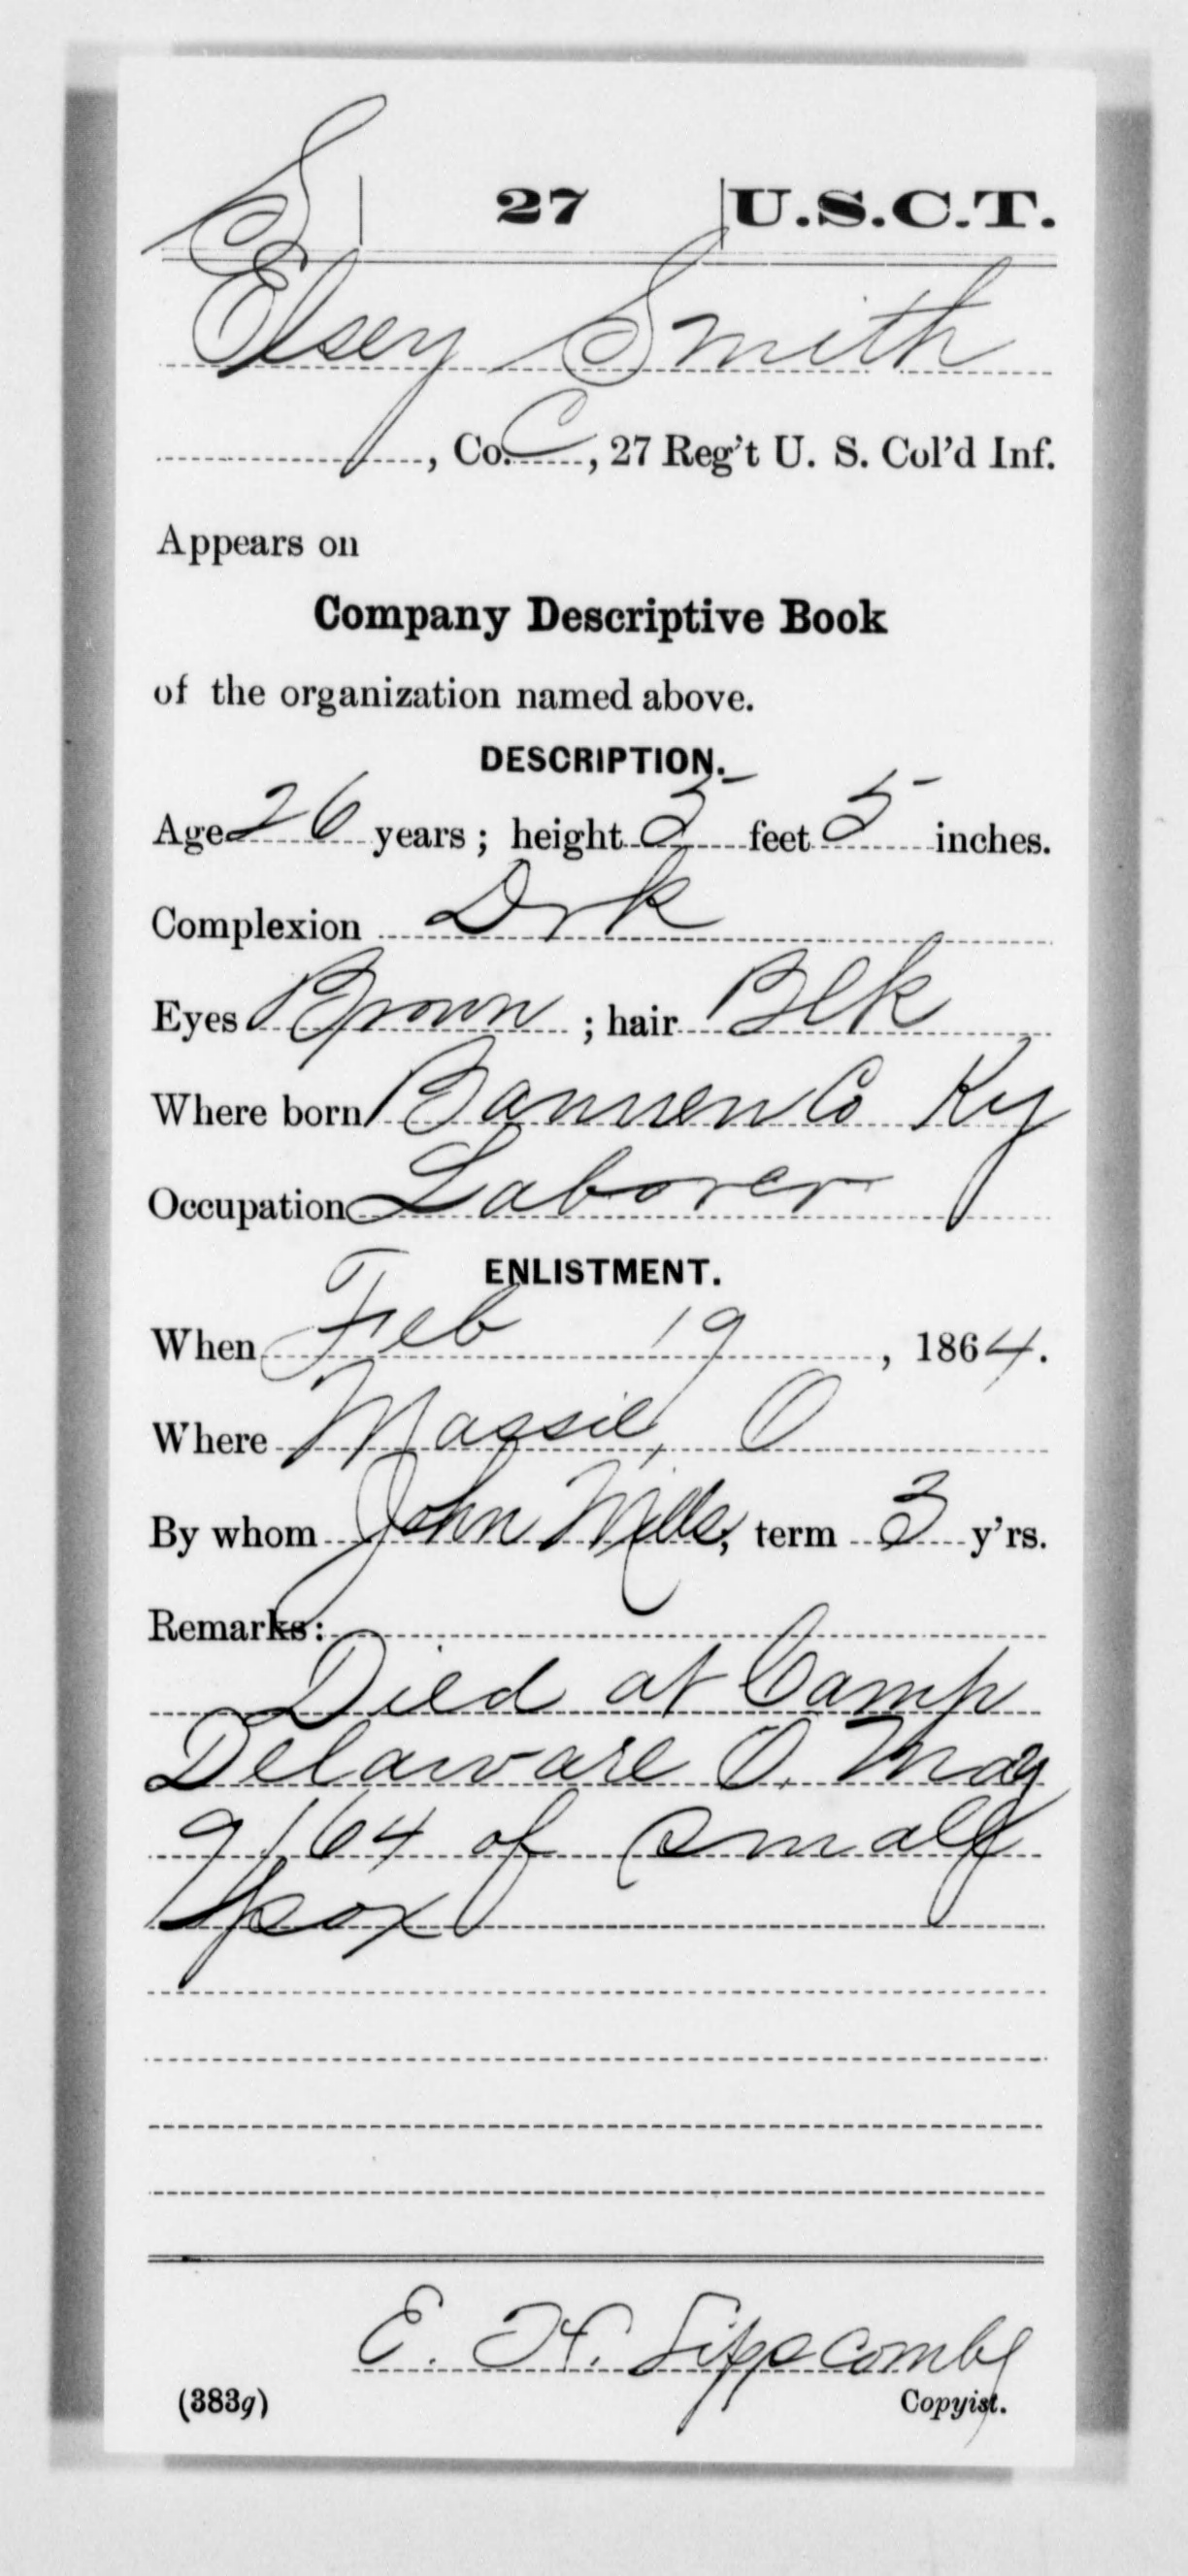 S | 27 | U.S.C.T.
Elsey Smith
, Co. C, 27 Reg't U. S. Col'd Inf.
Appears on
Company Descriptive Book
of the organization named above.
DESCRIPTION.
Age 26 years; height 5 feet 5 inches.
Complexion Drk
Eyes Brown; hair Blk
Where born Barren Co Ky
Occupation Laborer
ENLISTMENT.
When Feb 19, 1864.
Where Massil, O
By whom John Mills, term 3 y'rs.
Remarks:
Died at Camp
Delaware O. May
9/64 of small
pox
E. H. Lipscomb
(383g) Copyist.